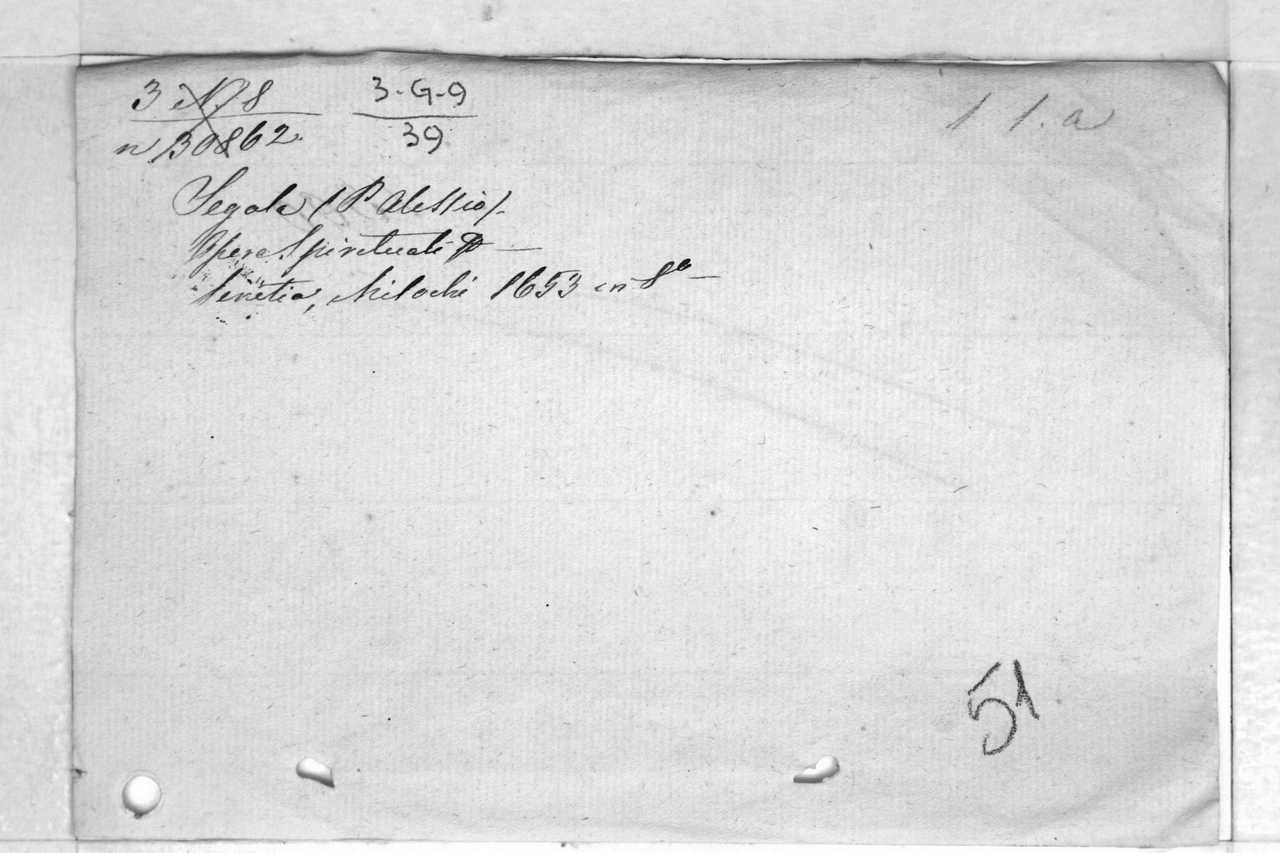 3 N 8 3-G-9 1 1. a
n 30862. 39
Segala (P Alessio).
Opere Spirituali
Venetia, Milochi 1653 in 8º
51